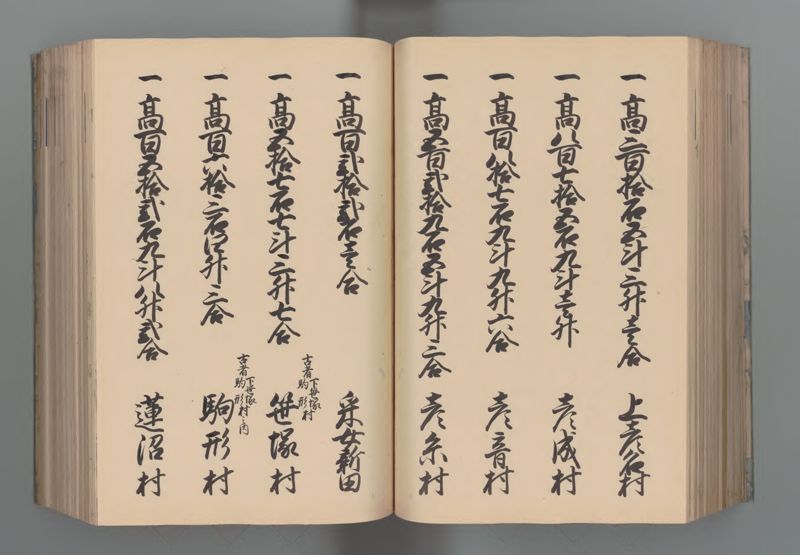 一 高三百拾石五斗三升壱合 上彦名村
一 高八百七拾五石九斗壱升 彦成村
一 高百八拾七石九斗九升六合 彦音村
一 高五百弐拾九石五斗九升三合 彦糸村
一 高百弐拾弐石壱合 采女新田
一 高五拾七石七斗三升七合 古者駒形村 下笹塚 笹塚村
一 高百六拾三石四升三合 古者駒形村之内 下笹塚 駒形村
一 高百五拾弐石九斗八升弐合 蓮沼村